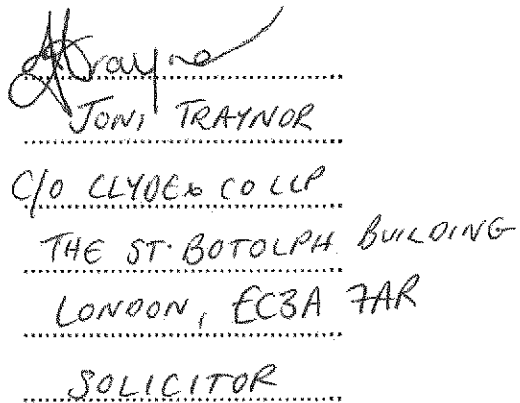 JTraynor
JONI TRAYNOR
C/O CLYDE & CO LLP
THE ST. BOTOLPH BUILDING
LONDON, EC3A 7AR
SOLICITOR